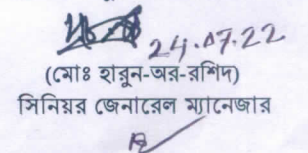 24.07.22
(মোঃ হারুন-অর-রশিদ)
সিনিয়র জেনারেল ম্যানেজার